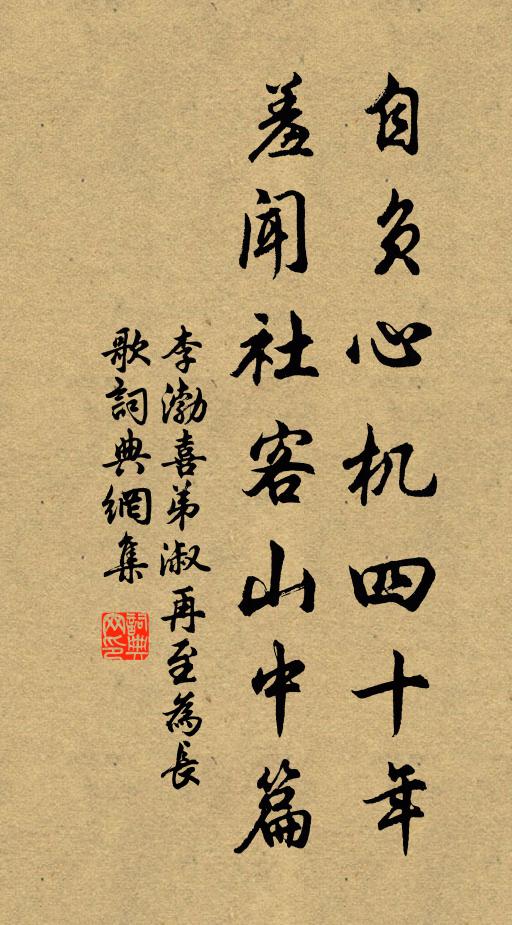 自负心机四十年
羞闻社客山中篇
李渤喜弟淑再至為長
歌詞典網集
詞典網印